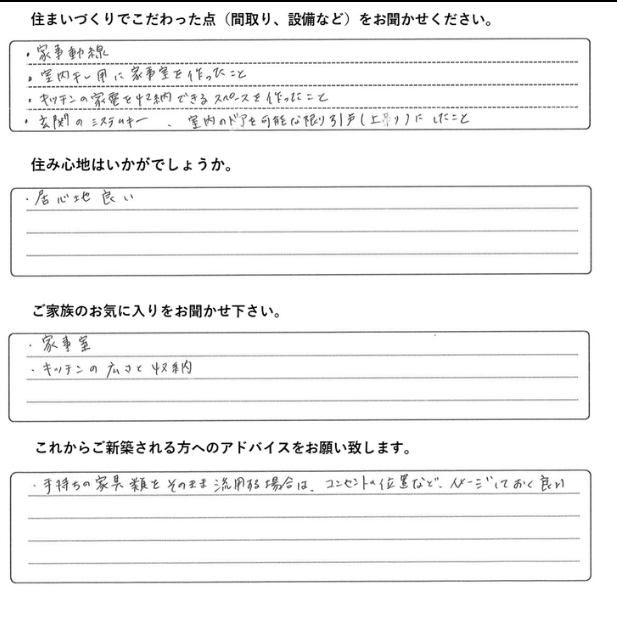 住まいづくりでこだわった点（間取り、設備など）をお聞かせください。
・家事動線
・室内干し用に家事室を作ったこと
・キッチンの家電を収納できるスペースを作ったこと
・玄関のシステムキー、室内のドアを可能な限り引戸(上吊り)にしたこと
住み心地はいかがでしょうか。
・居心地良い
ご家族のお気に入りをお聞かせ下さい。
・家事室
・キッチンの広さと収納
これからご新築される方へのアドバイスをお願い致します。
・手持ちの家具類をそのまま流用する場合は、コンセントの位置など、イメージしておく良い